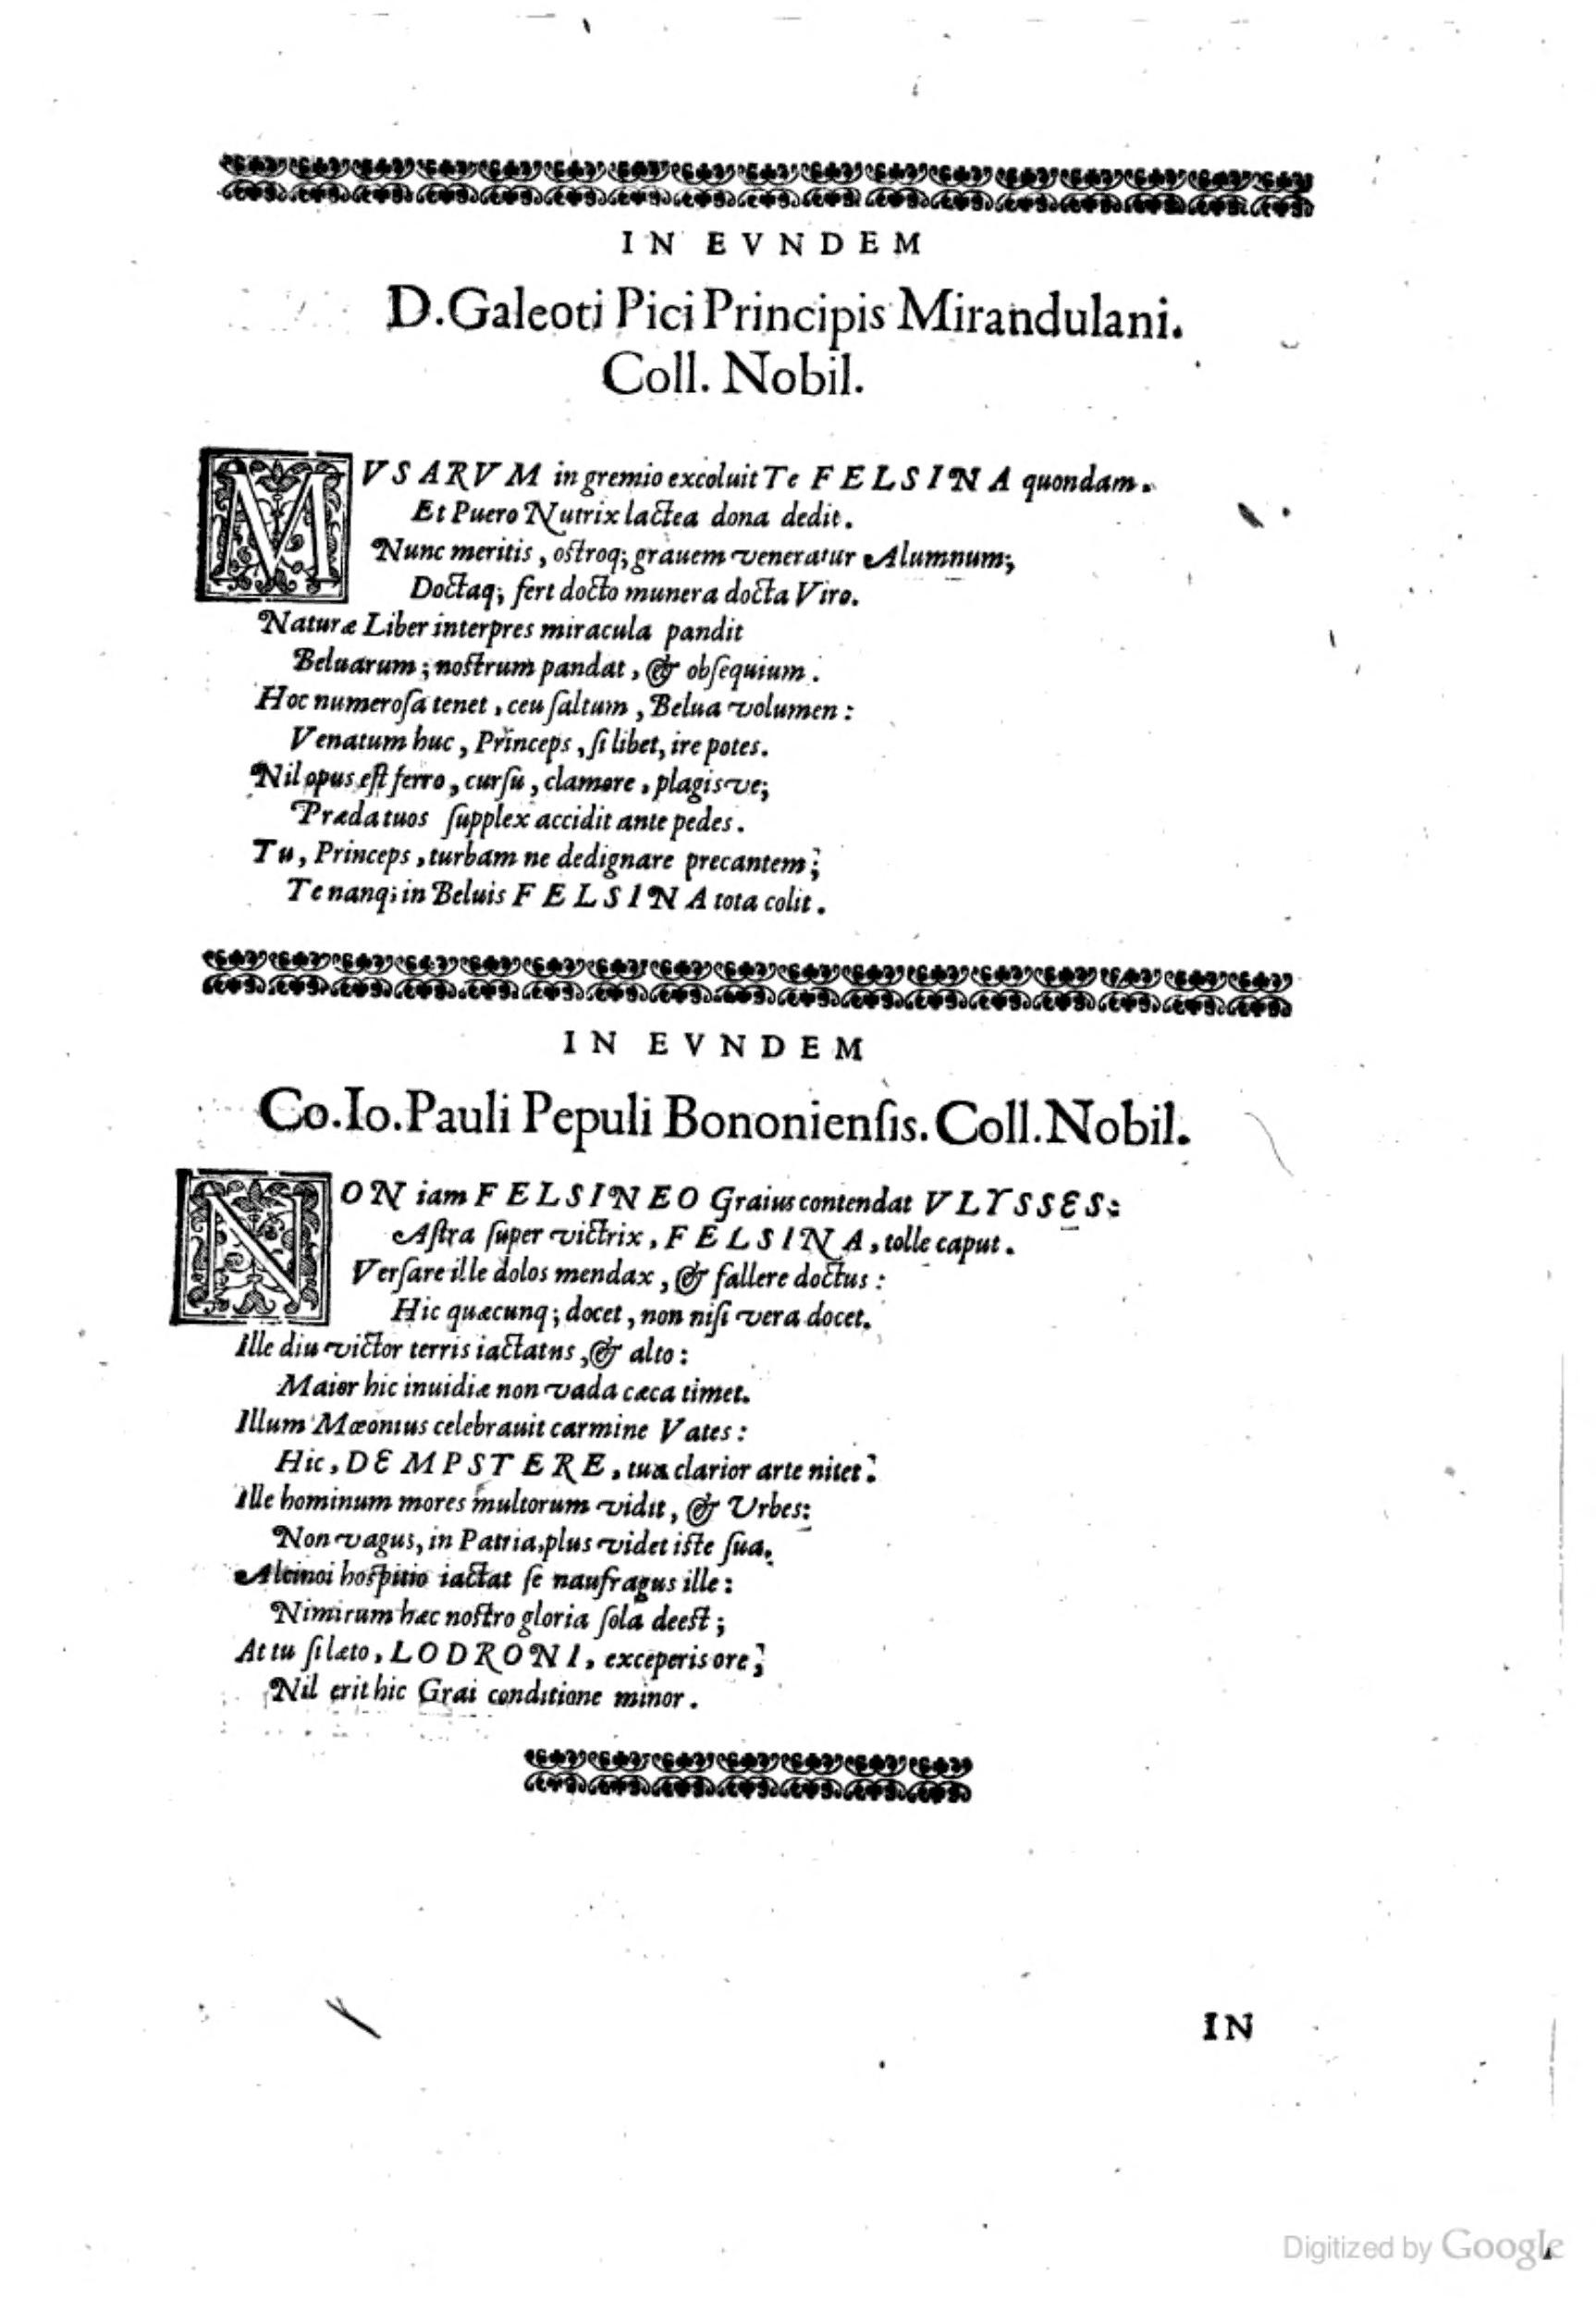 IN EVNDEM
D. Galeoti Pici Principis Mirandulani.
Coll. Nobil.
MVSARVM in gremio excoluit Te FELSINA quondam.
Et Puero Nutrix lactea dona dedit.
Nunc meritis, ostroq; grauem veneratur Alumnum;
Doctaq; fert docto munera docta Viro.
Naturæ Liber interpres miracula pandit
Beluarum; nostrum pandat, & obſequium.
Hoc numeroſa tenet, ceu ſaltum, Belua volumen:
Venatum huc, Princeps, ſi libet, ire potes.
Nil opus eſt ferro, curſu, clamore, plagisve;
Præda tuos ſupplex accidit ante pedes.
Tu, Princeps, turbam ne dedignare precantem;
Te nanq; in Beluis FELSINA tota colit.
IN EVNDEM
Co. Io. Pauli Pepuli Bononienſis. Coll. Nobil.
NON iam FELSINEO Graius contendat VLYSSES:
Aſtra ſuper victrix, FELSINA, tolle caput.
Verſare ille dolos mendax, & fallere doctus:
Hic quæcunq; docet, non niſi vera docet.
Ille diu victor terris iactatus, & alto:
Maior hic inuidiæ non vada cæca timet.
Illum Mœonius celebrauit carmine Vates:
Hic, DEMPSTERE, tua clarior arte nitet.
Ille hominum mores multorum vidit, & Urbes:
Non vagus, in Patria, plus videt iste ſua.
Alcinoi hoſpitio iactat ſe naufragus ille:
Nimirum hæc nostro gloria ſola deest;
At tu ſi læto, LODRONI, exceperis ore;
Nil erit hic Grai conditione minor.
IN
Digitized by Google